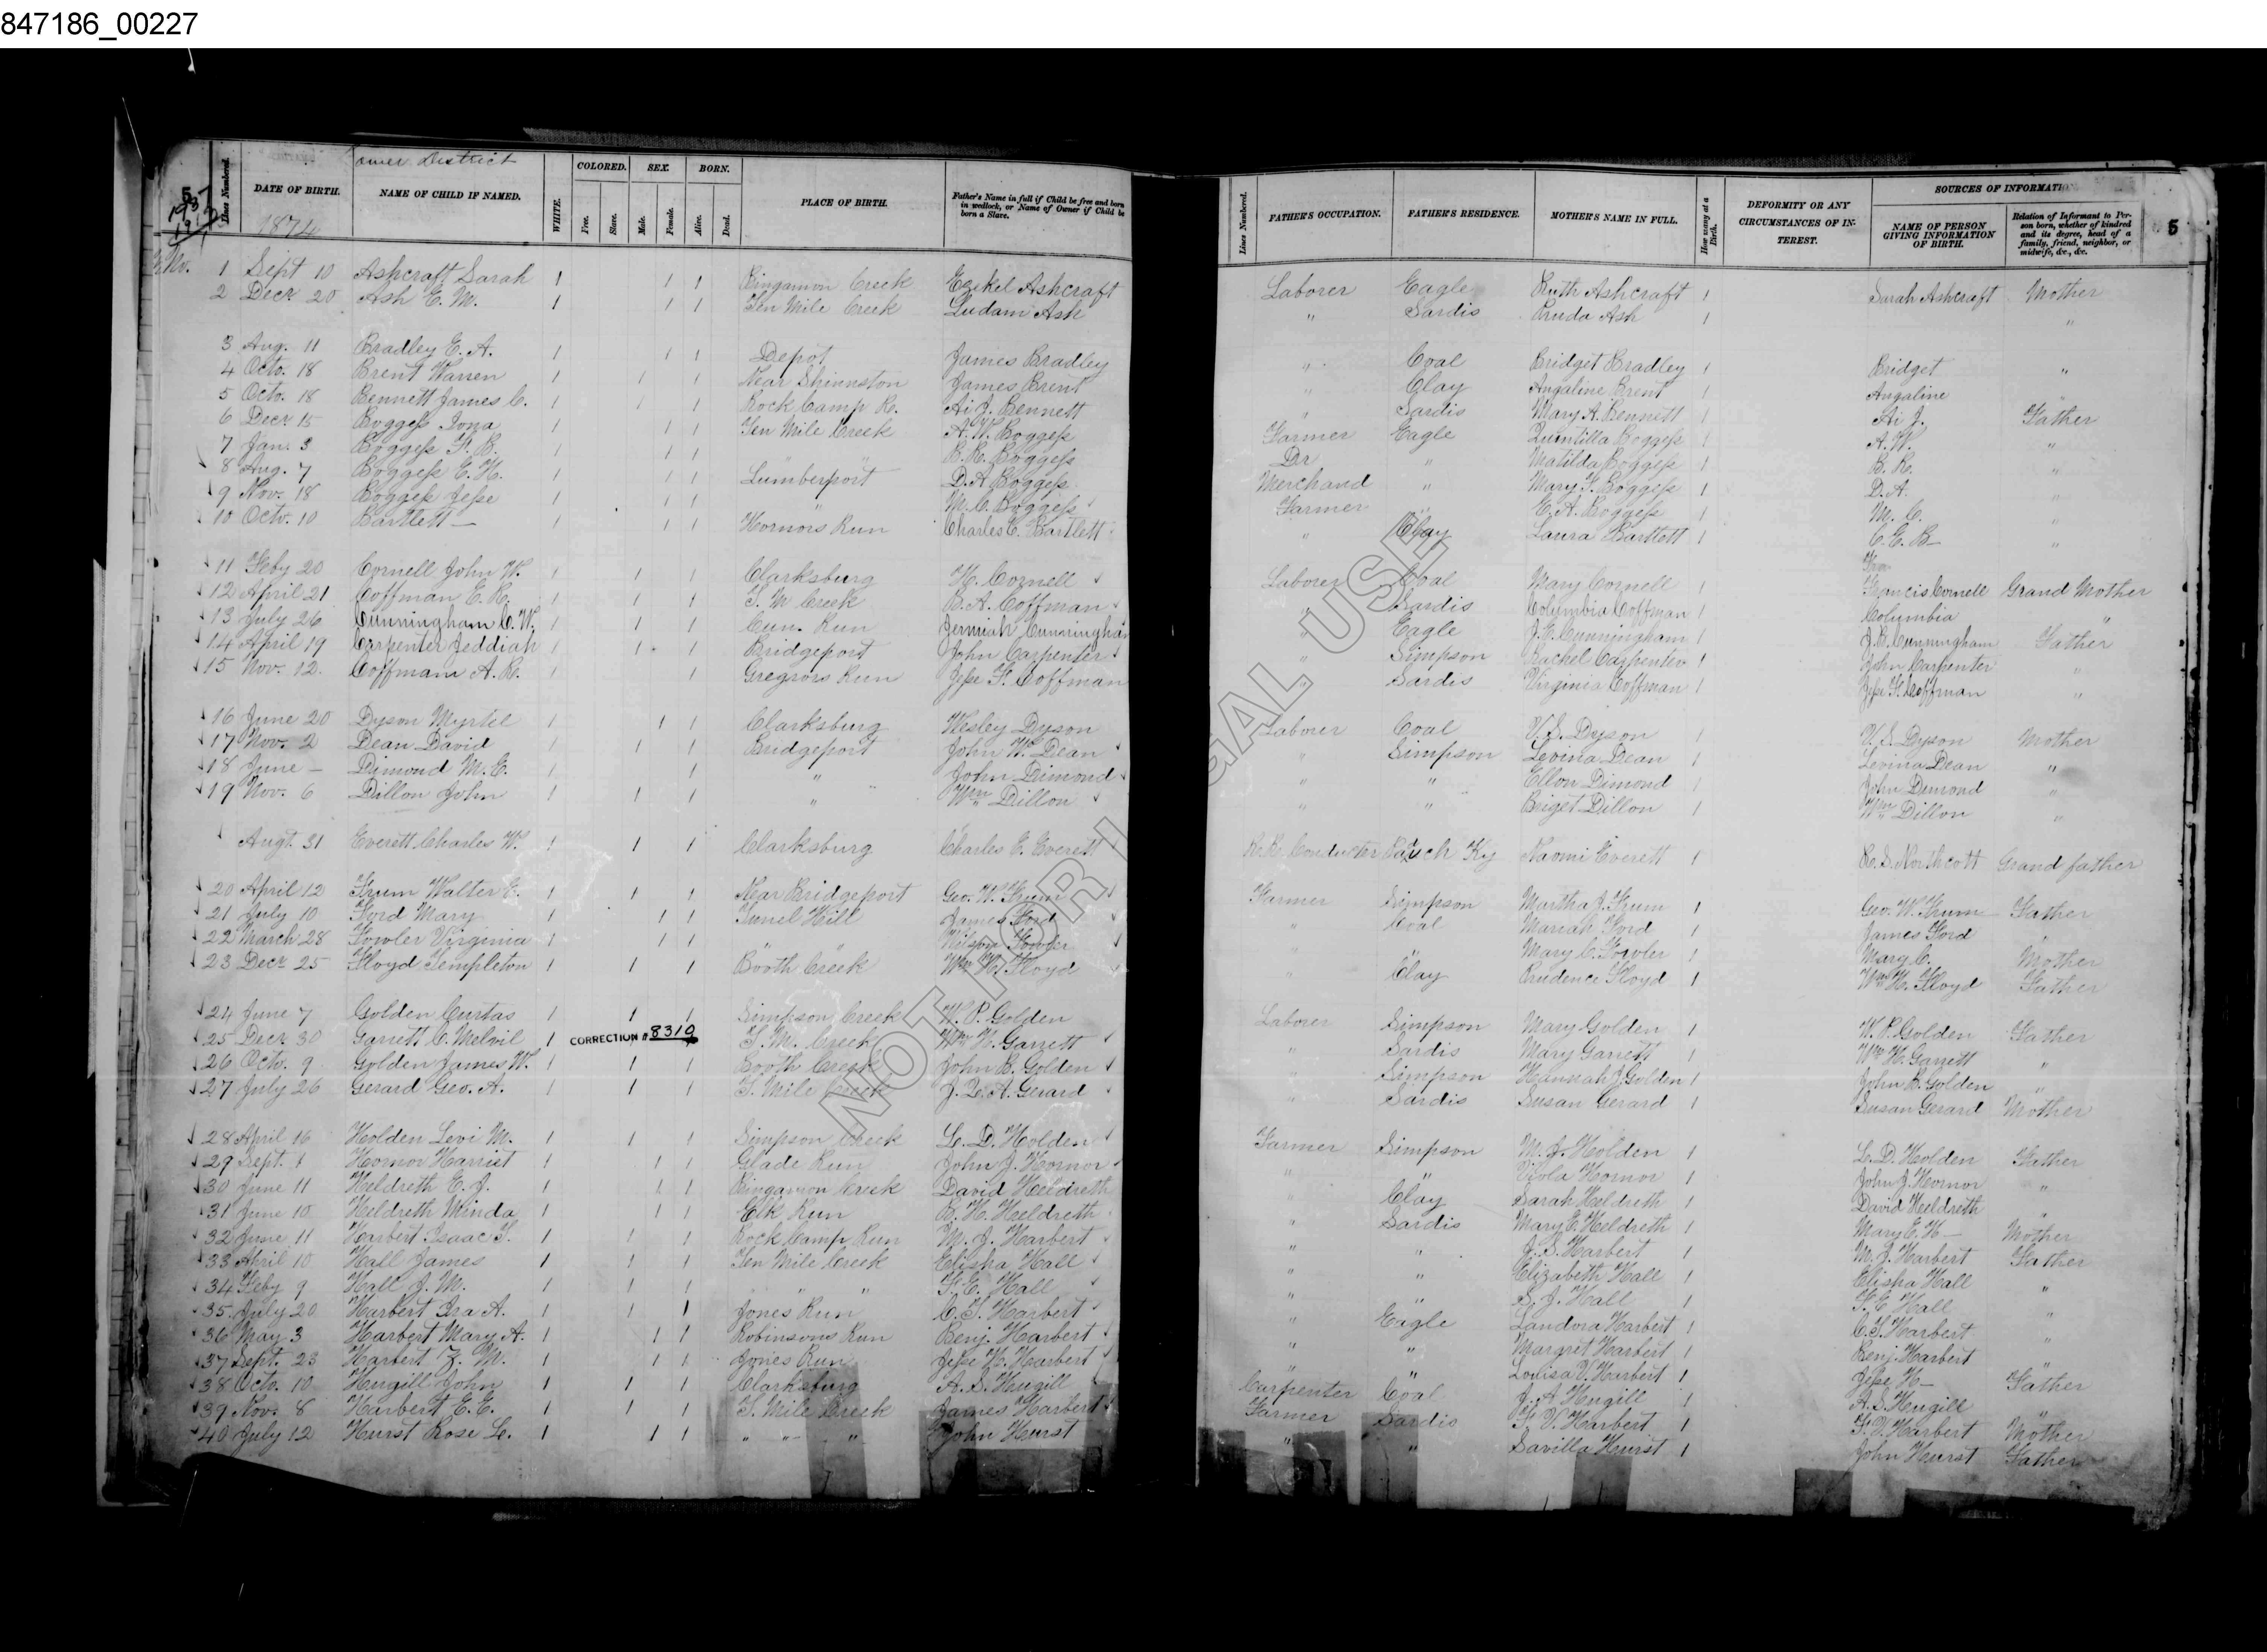 847186_00227
ower District
COLORED. SEX. BORN.
Lines Numbered. DATE OF BIRTH. NAME OF CHILD IF NAMED. WHITE. Free. Slave. Male. Female. Alive. Dead. PLACE OF BIRTH. Father's Name in full if Child be free and born in wedlock, or Name of Owner if Child be born a Slave.
1874
1 Sept 10 Ashcraft Sarah 1 1 1 Bingamon Creek Ezekel Ashcraft
2 Decr 20 Ash E. M. 1 1 1 Ten Mile Creek Ludam Ash
3 Aug. 11 Bradley E. A. 1 1 1 Depot James Bradley
4 Octo. 18 Brent Warren 1 1 1 Near Shinnston James Brent
5 Octo. 18 Bennett James C. 1 1 1 Rock Camp R. Ai J. Bennett
6 Decr 15 Boggess Iona 1 1 1 Ten Mile Creek A. W. Boggess
7 Jan. 3 Boggess F. B. 1 1 1 " " B. R. Boggess
8 Aug. 7 Boggess E. H. 1 1 1 Lumberport D. A. Boggess
9 Nov. 18 Boggess Jesse 1 1 1 M. C. Boggess
10 Octo. 10 Bartlett — 1 1 1 Hornors Run Charles C. Bartlett
11 Feby 20 Cornell John W. 1 1 1 Clarksburg H. Cornell
12 April 21 Coffman E. R. 1 1 1 T. M Creek B. A. Coffman
13 July 26 Cunningham C. W. 1 1 1 Cun. Run Jermiah Cunningham
14 April 19 Carpenter Jeddiah 1 1 1 Bridgeport John Carpenter
15 Nov. 12. Coffman A. R. 1 1 Gregrors Run Jesse F. Coffman
16 June 20 Dyson Myrtil 1 1 1 Clarksburg Wesley Dyson
17 Nov. 2 Dean David 1 1 1 Bridgeport John W. Dean
18 June — Dimond M. E. 1 1 " " John Dimond
19 Nov. 6 Dillon John 1 1 1 " Wm Dillon
Augt. 31 Everett Charles W. 1 1 1 Clarksburg Charles E. Everett
20 April 12 Frum Walter E. 1 1 1 Near Bridgeport Geo. W. Frum
21 July 10 Ford Mary 1 1 1 Tunel Hill James Ford
22 March 28 Fowler Virginia 1 1 1 " " Wilson Fowler
23 Decr 25 Floyd Templeton 1 1 1 Booth Creek Wm H. Floyd
24 June 7 Golden Curtas 1 1 1 Simpson Creek W. P. Golden
25 Decr 30 Garrett C. Melvil 1 CORRECTION # 8310 T. M. Creek Wm H. Garrett
26 Octo. 9 Golden James W. 1 1 1 Booth Creek John B. Golden
27 July 26 Gerard Geo. A. 1 1 1 T. Mile Creek J. Q. A. Gerard
28 April 16 Holden Levi M. 1 1 1 Simpson Creek L. D. Holden
29 Sept. 1 Hornor Harriet 1 1 1 Glade Run John J. Hornor
30 June 11 Heldreth E. J. 1 1 1 Bingamon Creek David Heldreth
31 June 10 Heldreth Minda 1 1 1 Elk Run R. H. Heldreth
32 June 11 Harbert Isaac T. 1 1 1 Rock Camp Run M. J. Harbert
33 April 10 Hall James 1 1 1 Ten Mile Creek Elisha Hall
34 Feby 9 Hall J. M. 1 1 1 " " " F. E. Hall
35 July 20 Harbert Ira A. 1 1 1 Jones Run C. T. Harbert
36 May 3 Harbert Mary A. 1 1 1 Robinsons Run Benj. Harbert
37 Sept. 23 Harbert Z. M. 1 1 1 Jones Run Jesse H. Harbert
38 Octo. 10 Hugill John 1 1 1 Clarksburg A. S. Hugill
39 Nov. 8 Harbert E. E. 1 1 1 T. Mile Creek James Harbert
40 July 12 Hurst Rose L. 1 1 1 " " " John Hurst
SOURCES OF INFORMATIO
Lines Numbered. FATHER'S OCCUPATION. FATHER'S RESIDENCE. MOTHER'S NAME IN FULL. How many at a Birth. DEFORMITY OR ANY CIRCUMSTANCES OF INTEREST. NAME OF PERSON GIVING INFORMATION OF BIRTH. Relation of Informant to Person born, whether of kindred and its degree, head of a family, friend, neighbor, or midwife, &c., &c.
5
Laborer Eagle Ruth Ashcraft 1 Sarah Ashcraft Mother
" Sardis Pruda Ash 1 "
" Coal Bridget Bradley 1 Bridget "
" Clay Angaline Brent 1 Angaline "
" Sardis Mary A. Bennett 1 Ai J. Father
Farmer Eagle Quintilla Boggess 1 A. W. "
Dr " Matilda Boggess 1 B. R. "
Merchand " Mary F. Boggess 1 D. A. "
Farmer " E. A. Boggess 1 M. C. "
" Clay Laura Bartlett 1 C. E. B— "
Laborer Coal Mary Cornell 1 Francis Cornell Grand Mother
" Sardis Columbia Coffman 1 Columbia "
" Eagle J. E. Cunningham 1 J. B. Cunningham Father
" Simpson Rachel Carpenter 1 John Carpenter "
" Sardis Virginia Coffman 1 Jesse F. Coffman "
Laborer Coal V. S. Dyson 1 V. S. Dyson Mother
" Simpson Levina Dean 1 Levina Dean "
" " Ellon Dimond 1 John Dimond "
" " Briget Dillon 1 Wm Dillon "
R. R. Conductor Ky Naomi Everett 1 R. S. Northcott Grand father
Farmer Simpson Martha J. Frum 1 Geo. W. Frum Father
" Coal Mariah Ford 1 James Ford "
" " Mary C. Fowler 1 Mary C. Mother
" Clay Prudence Floyd 1 Wm H. Floyd Father
Laborer Simpson Mary Golden 1 W. P. Golden Father
" Sardis Mary Garrett 1 Wm H. Garrett "
" Simpson Hannah J. Golden 1 John B. Golden "
" Sardis Susan Gerard 1 Susan Gerard Mother
Farmer Simpson M. J. Holden 1 L. D. Holden Father
" " Viola Hornor 1 John J. Hornor "
" Clay Sarah Heldreth 1 David Heldreth "
" Sardis Mary E. Heldreth 1 Mary E. H— Mother
" " J. S. Harbert 1 M. J. Harbert Father
" " Elizabeth Hall 1 Elisha Hall "
" " S. J. Hall 1 F. E. Hall "
" Eagle Landora Harbert 1 C. T. Harbert "
" " Margret Harbert 1 Benj. Harbert "
" " Louisa V. Harbert 1 Jesse H— Father
Carpenter Coal J. A. Hugill 1 A. S. Hugill "
Farmer Sardis F. V. Harbert 1 F. V. Harbert Mother
" " Savilla Hurst 1 John Hurst Father